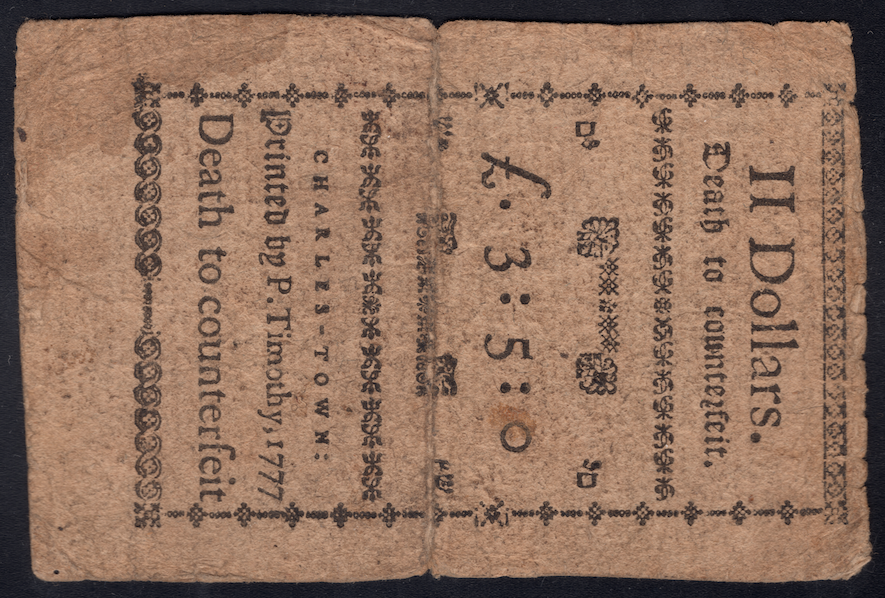 II Dollars.
Death to counterfeit.
£. 3 : 5 : 0
CHARLES-TOWN:
Printed by P. Timothy, 1777
Death to counterfeit